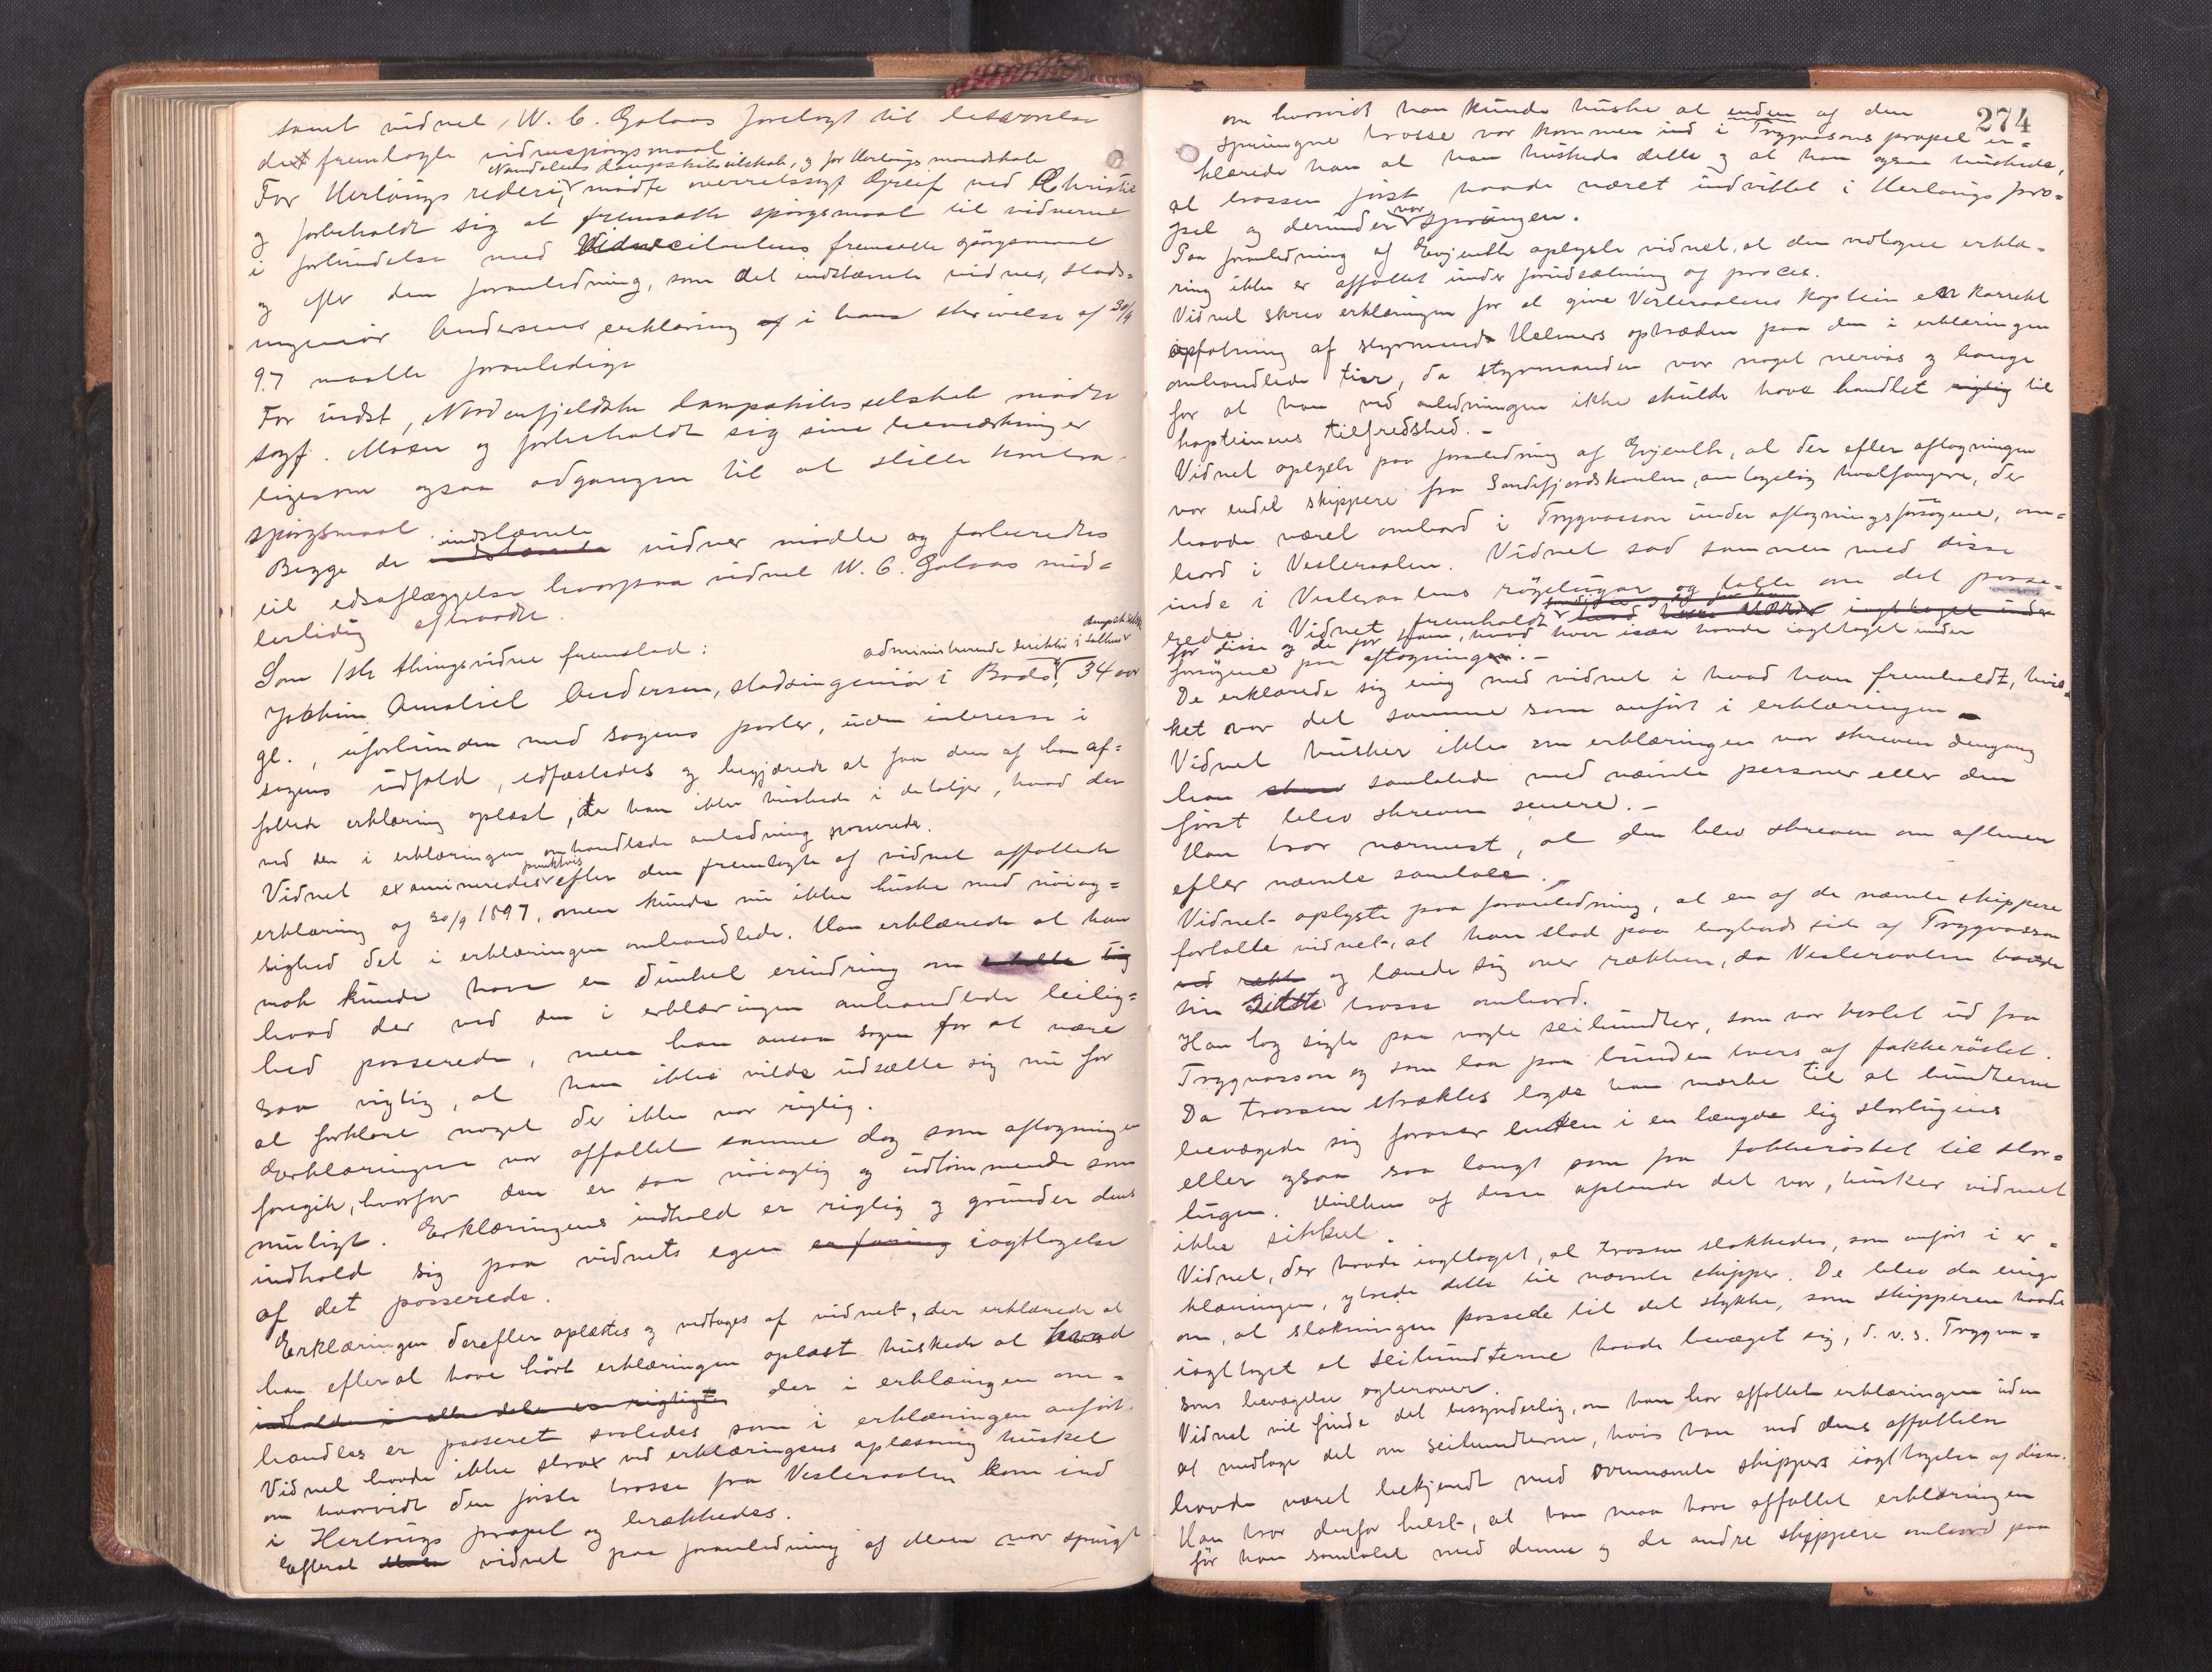 samt vidnet, W. C. Galaas forelagt til besvarelse
det fremlagte vidnespörgsmaal
Namdalens dampskibsselskab, og for Herlaugs mandskab
For Herlaugs rederi, mödte overretssagf Greif ved Christie
og forbeholdt sig at fremsætte spörgsmaal til vidnerne
i forbindelse med Vidnecitantens fremsatte spörgsmaal
og efter den foranledning, som det indstævnte vidnes, stads-
ingeniör Andersens erklæring af i hans skrivelse af 30/9
97 maatte foranledige
For indst, Nordenfjeldske dampskibsselskab mödte
sagf. Moen og forbeholdt sig sine bemærkninger
ligesom ogsaa adgangen til at stille kontra-
spörgsmaal.
indstævnte
Begge de indstævnte vidner mödte og forberedtes
til edsaflæggelse hvorpaa vidnet W. C. Galaas mid-
lertidig aftraadte.
Som 1ste thingsvidne fremstod:
administrerende direktör i Saltens dampsk.selsk
Joakim Amaliel Andersen, stadsingeniör i Bodö, 34 aar
gl., uforbunden med sagens parter, uden interesse i
sagens udfald, edfæstedes og begjærede at faa den af ham af-
fattede erklæring oplæst, da han ikke huskede i detaljer, hvad der
ved den i erklæringen omhandlede anledning passerede.
punktvis
Vidnet examineredes efter den fremlagte af vidnet affattede
erklæring af 30/9 1897, men kunde nu ikke huske med nöiag-
tighed det i erklæringen omhandlede. Han erklærede at han
nok kunde have en dunkel erindring om
hvad der ved den i erklæringen omhandlede leilig-
hed passerede, men han ansaa sagen for at være
saa vigtig, at han ikke vilde udsætte sig nu for
at forklare noget der ikke var rigtig.
Erklæringen var affattet samme dag som aftagningen
foregik, hvorfor den er saa nöiagtig og udtömmende som
muligt. Erklæringens indhold er rigtig og grunder dens
indhold sig paa vidnets egen erfaring iagttagelse
af det passerede.
Erklæringen derefter oplæstes og vedtoges af vidnet, der erklærede at
han efter at have hört erklæringen oplæst huskede at hvad
indholdet i alle dele er rigtigt der i erklæringen om-
handles er passeret saaledes som i erklæringen anfört.
Vidnet havde ikke strax ved erklæringens oplæsning husket
om hvorvidt den förste trosse fra Vesteraalen kom ind
i Herlaugs propel og brækkedes.
Efterat vidnet paa foranledning af Moen var spurgt
274
om hvorvidt han kunde huske at enden af den
sprungne trosse var kommen ind i Trygvasons propel er-
klærede han at han huskede dette og at han ogsaa huskede,
at trossen först havde været indviklet i Herlaugs pro-
pel og derunder var sprungen.
Paa foranledning af Evjenth oplyste vidnet, at den vedtagne erklæ-
ring ikke er affattet under forudsætning af proces.
Vidnet skrev erklæringen for at give Vesteraalens kaptein en korrekt
opfatning af styrmand Helmers optræden paa den i erklæringen
omhandlede tur, da styrmanden var noget nervös og bange
for at han ved anledningen ikke skulde have handlet rigtig til
kapteinens tilfredshed. -
Vidnet oplyste paa foranledning af Evjenth, at der efter aftagningen
var endel skippere fra Sandefjordskanten, antagelig hvalfangere, der
havde været ombord i Trygvasson under aftagningsforsögene, om-
bord i Vesteraalen. Vidnet sad sammen med disse
inde i Vesteraalens rögelugar og talte om det passe-
rede. Vidnet fremholdt hvad iagttaget under
for disse og de for ham, hvad hver især havde iagttaget under
forsögene paa aftagningen. -
De erklærede sig enig med vidnet i hvad han fremholdt, hvil-
ket var det samme som anfört i erklæringen
Vidnet husker ikke om erklæringen var skreven dengang
han skrev samtalede med nævnte personer eller den
först blev skreven senere. -
Han tror nærmest, at den blev skreven om aftenen
efter nævnte samtale. -
Vidnet oplyste paa foranledning, at en af de nævnte skippere
fortalte vidnet, at han stod paa bagbords side af Trygvasson
ved rækk og lænede sig over rækken, da Vesteraalen havde
sin sidste trosse ombord.
Han tog sigte paa nogle seilbundter, som var kastet ud fra
Trygvasson og som laa paa bunden tvers af fokkeröstet.
Da trossen strækkes lagde han mærke til at bundterne
bevægede sig forover enten i en længde lig storlugens
eller ogsaa saa langt som fra fokkeröstet til stor-
lugen. Hvilken af disse afstande det var, husker vidnet
ikke sikkert.
Vidnet, der havde iagttaget, at trossen slakkedes, som anfört i er-
klæringen, ytrede dette til nævnte skipper. De blev da enige
om, at slakningen passede til det stykke, som skipperen havde
iagttaget at seilbundterne havde bevæget sig, d. v. s. Trygva-
sons bevægelse agterover.
Vidnet vil finde det besynderlig, om han har affattet erklæringen uden
at medtage det om seilbundterne, hvis han ved dens affattelse
havde været bekjendt med ovennævnte skippers iagttagelse af disse.
Han tror derfor helst, at han maa have affattet erklæringen
för han samtalet med denne og de andre skippere ombord paa